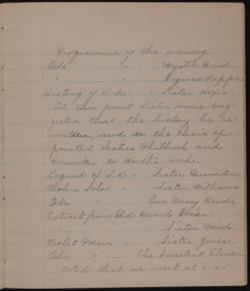 Programme of the evening.
Ode - Mystic Bond.
" -
History of S. - Sister Hoxie
At this point Sister Hoxie sug-
gested that the history be re-
and so the Chair ap-
pointed Sisters Philbrook and
to do the work.
Legend of - Sister
Violin Solo - Sister Williams
Ode -
Extract from Old Record Books
Sister Woods.
Violet Poem - Sister Jones.
Ode - The Sweetest Flower
Voted that we meet at 6.45